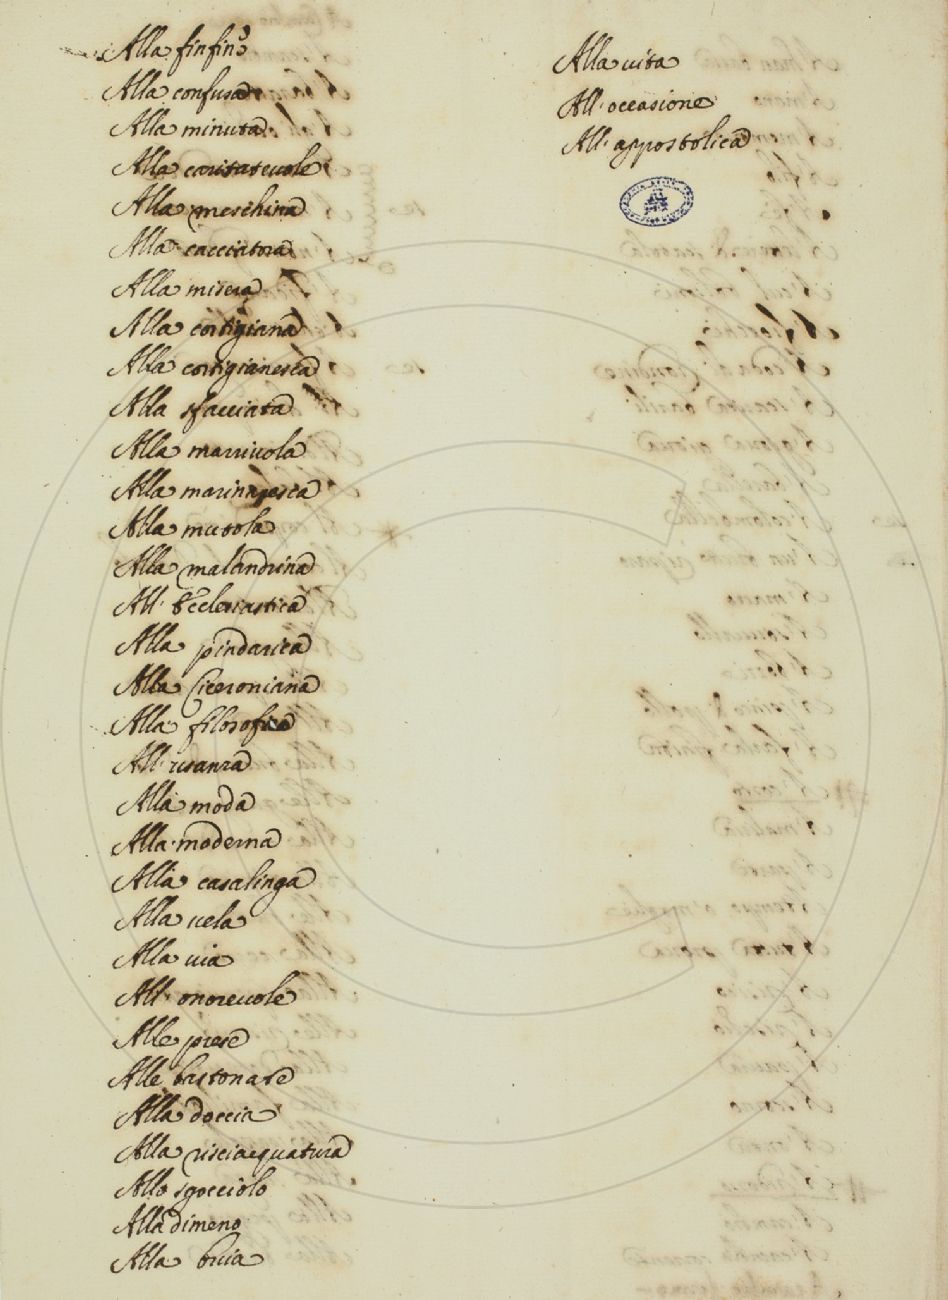 Alla finfine
Alla confusa
Alla minuta
Alla caritatevole
Alla meschina
Alla cacciatora
Alla misera
Alla cortigiana
Alla cortigianesca
Alla sfacciata
Alla marrivola
Alla marinaresca
Alla mutola
Alla malandrina
All' Ecclesiastica
Alla pindarica
Alla Ciceroniana
Alla filosofica
All' usanza
Alla moda
Alla moderna
Alla casalinga
Alla vela
Alla via
All' onorevole
Alle prese
Alle bastonate
Alla doccia
Alla risciacquatura
Allo sgocciolo
Alla dimeno
Alla bruia
Alla vita
All' occasione
All' appostolica